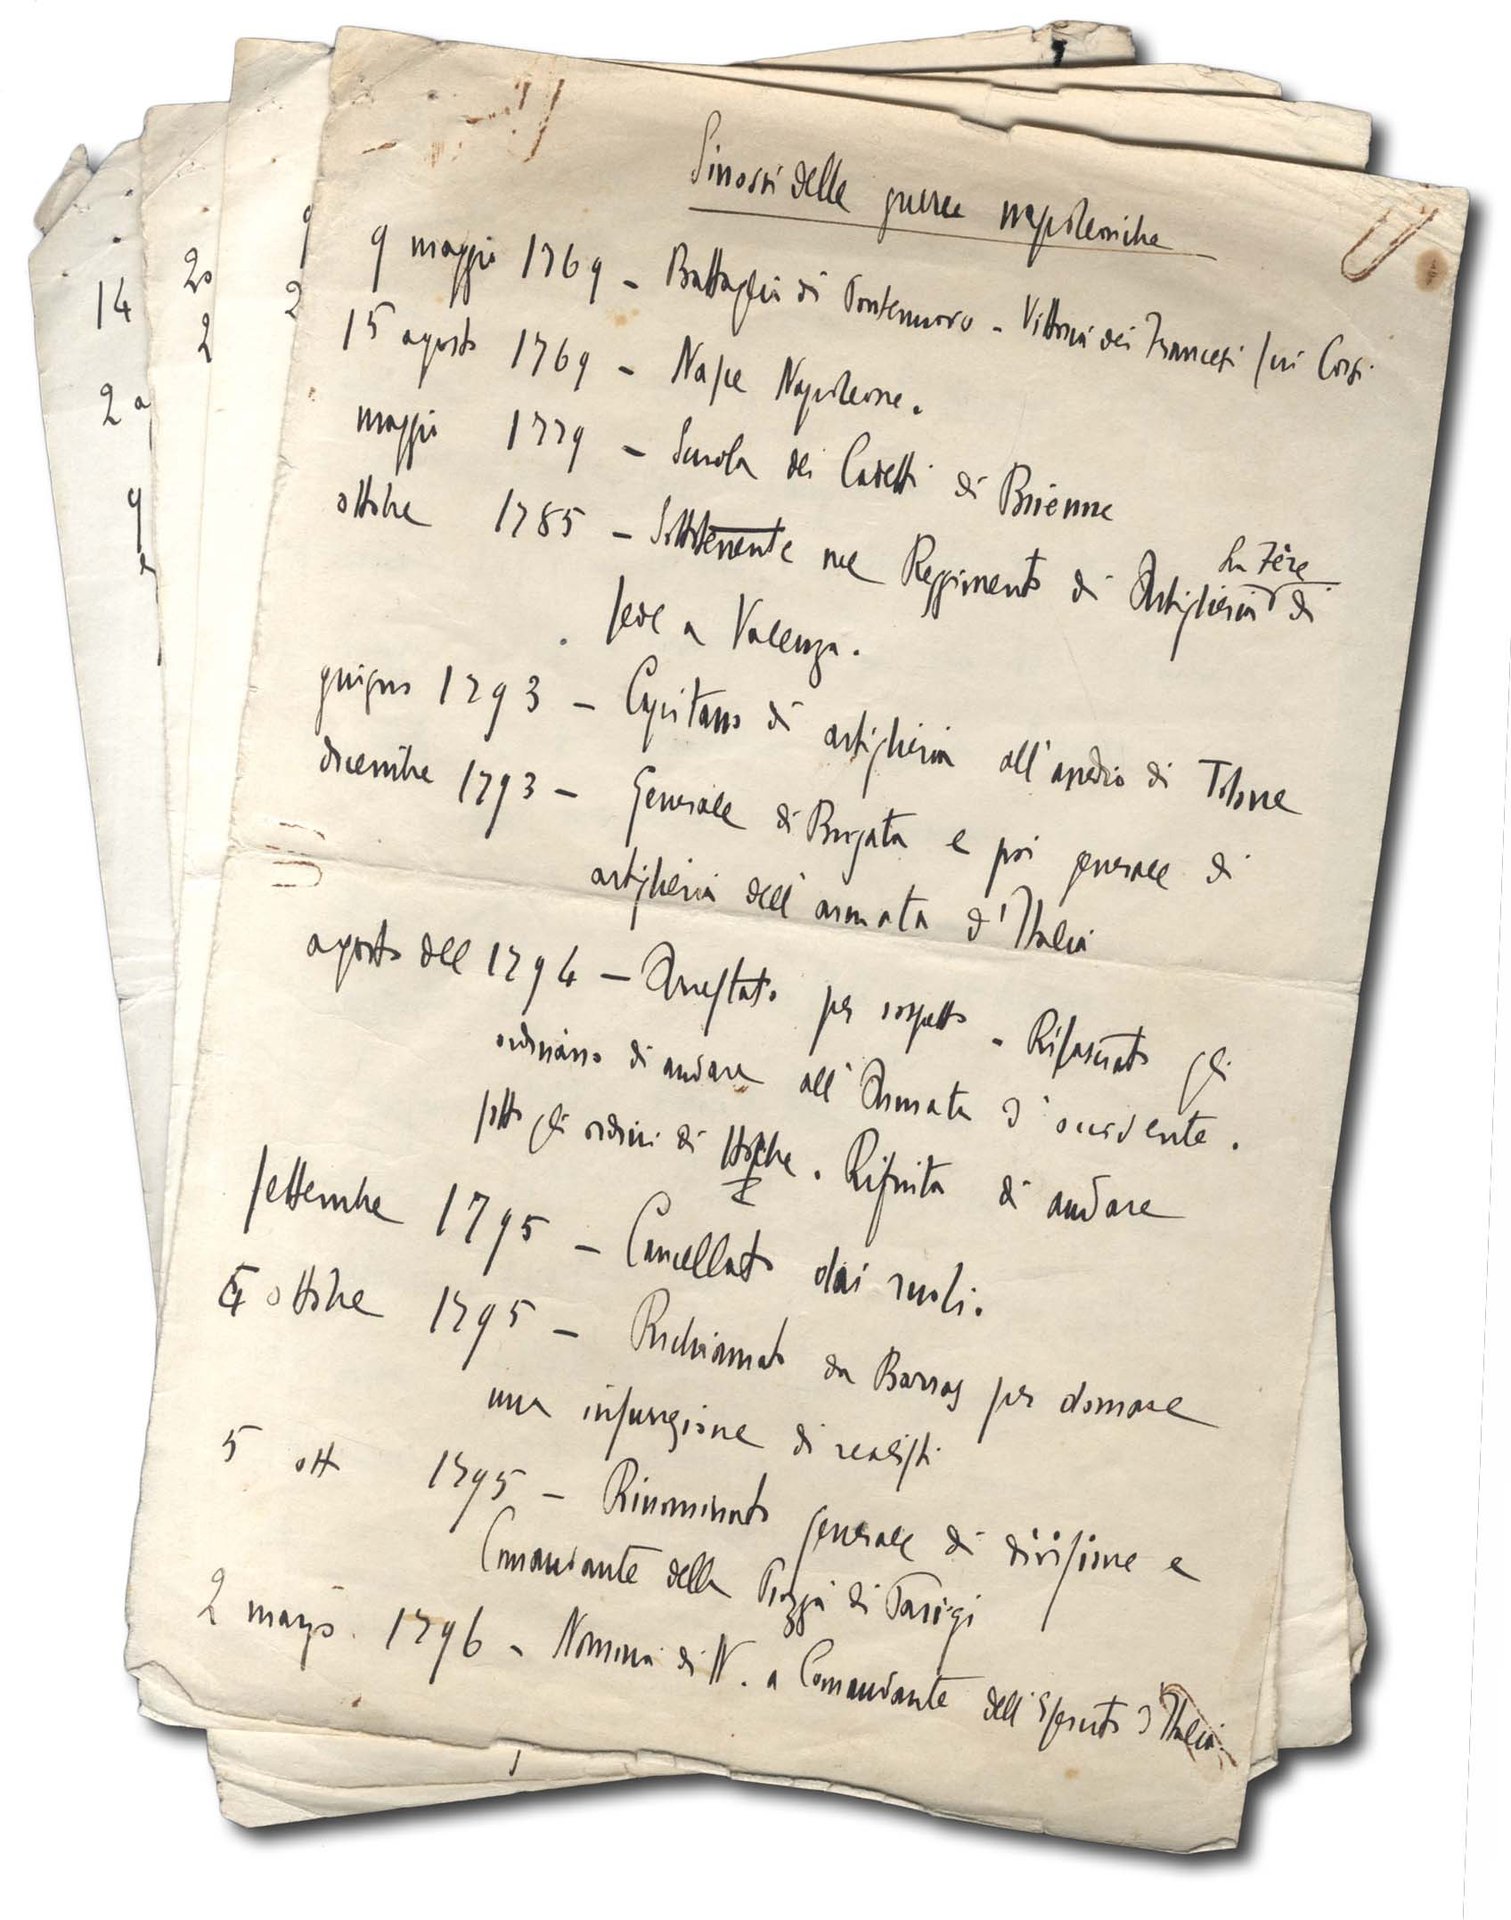 Sinossi delle guerre napoleoniche
9 maggio 1769 - Battaglia di Pontenuovo - Vittoria dei Francesi sui Corsi.
15 agosto 1769 - Nasce Napoleone.
maggio 1779 - Scuola dei Cadetti di Brienne
ottobre 1785 - Sottotenente nel Reggimento di Artiglieria La Fère di
sede a Valenza.
giugno 1793 - Capitano di artiglieria all'assedio di Tolone
dicembre 1793 - Generale di Brigata e poi generale di
artiglieria dell'armata d'Italia
agosto del 1794 - Arrestato per sospetto - Rilasciato gli
ordinano di andare all'Armata d'occidente.
sotto gli ordini di Hoche. Rifiuta di andare
settembre 1795 - Cancellato dai ruoli.
4 ottobre 1795 - Richiamato da Barras per domare
una insurrezione di realisti
5 ott 1795 - Rinominato generale di divisione e
Comandante della Piazza di Parigi
2 marzo 1796 - Nomina di N. a Comandante dell'Esercito d'Italia.
14
2 a
9
20
2
9
2